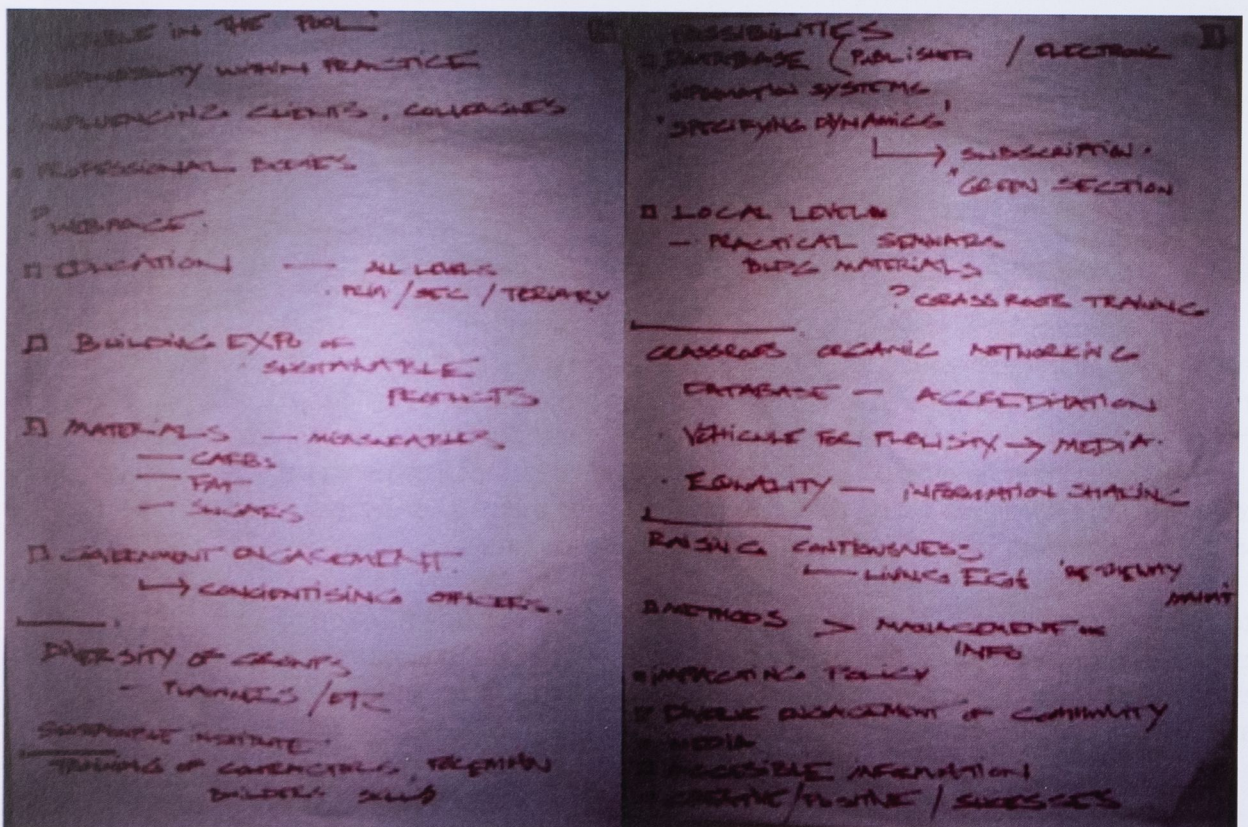 IN THE POOL
WITHIN PRACTICE
INFLUENCING CLIENTS, COLLEAGUES
PROFESSIONAL BODIES
? WEBPAGE.
EDUCATION — ALL LEVELS
PRIM / SEC / TERIARY
BUILDING EXPO OF
SUSTAINABLE
PRODUCTS
MATERIALS — MEASUREABLES
— CARBS
— FAT
— SUGARS
GOVERNMENT ENGAGEMENT.
↳ CONCIENTISING OFFICERS.
DIVERSITY OF GROUPS
- PLANNERS / ETC
INSTITUTE
TRAINING OF CONTRACTORS, FOREMAN
BUILDERS SKILLS
POSSIBILITIES
DATABASE (PUBLISHED / ELECTRONIC
INFORMATION SYSTEMS
'SPECIFYING DYNAMICS'
↳ SUBSCRIPTION.
"GREEN SECTION
LOCAL LEVEL
- PRACTICAL SEMINARS
BLDG MATERIALS
? GRASS ROOTS TRAINING
GRASSROOTS ORGANIC NETWORKING
DATABASE — ACCREDITATION
VEHICULE FOR PUBLISITY → MEDIA.
EQUALITY — INFORMATION SHARING
RAISING CONTIOUSNESS
LIVING EG'S
METHODS > MANAGEMENT OF
INFO
IMPACTING POLICY
DIVERSE ENGAGEMENT OF COMMUNITY
MEDIA
ACCESIBLE INFORMATION
CREATIVE / POSITIVE / SUCESSES